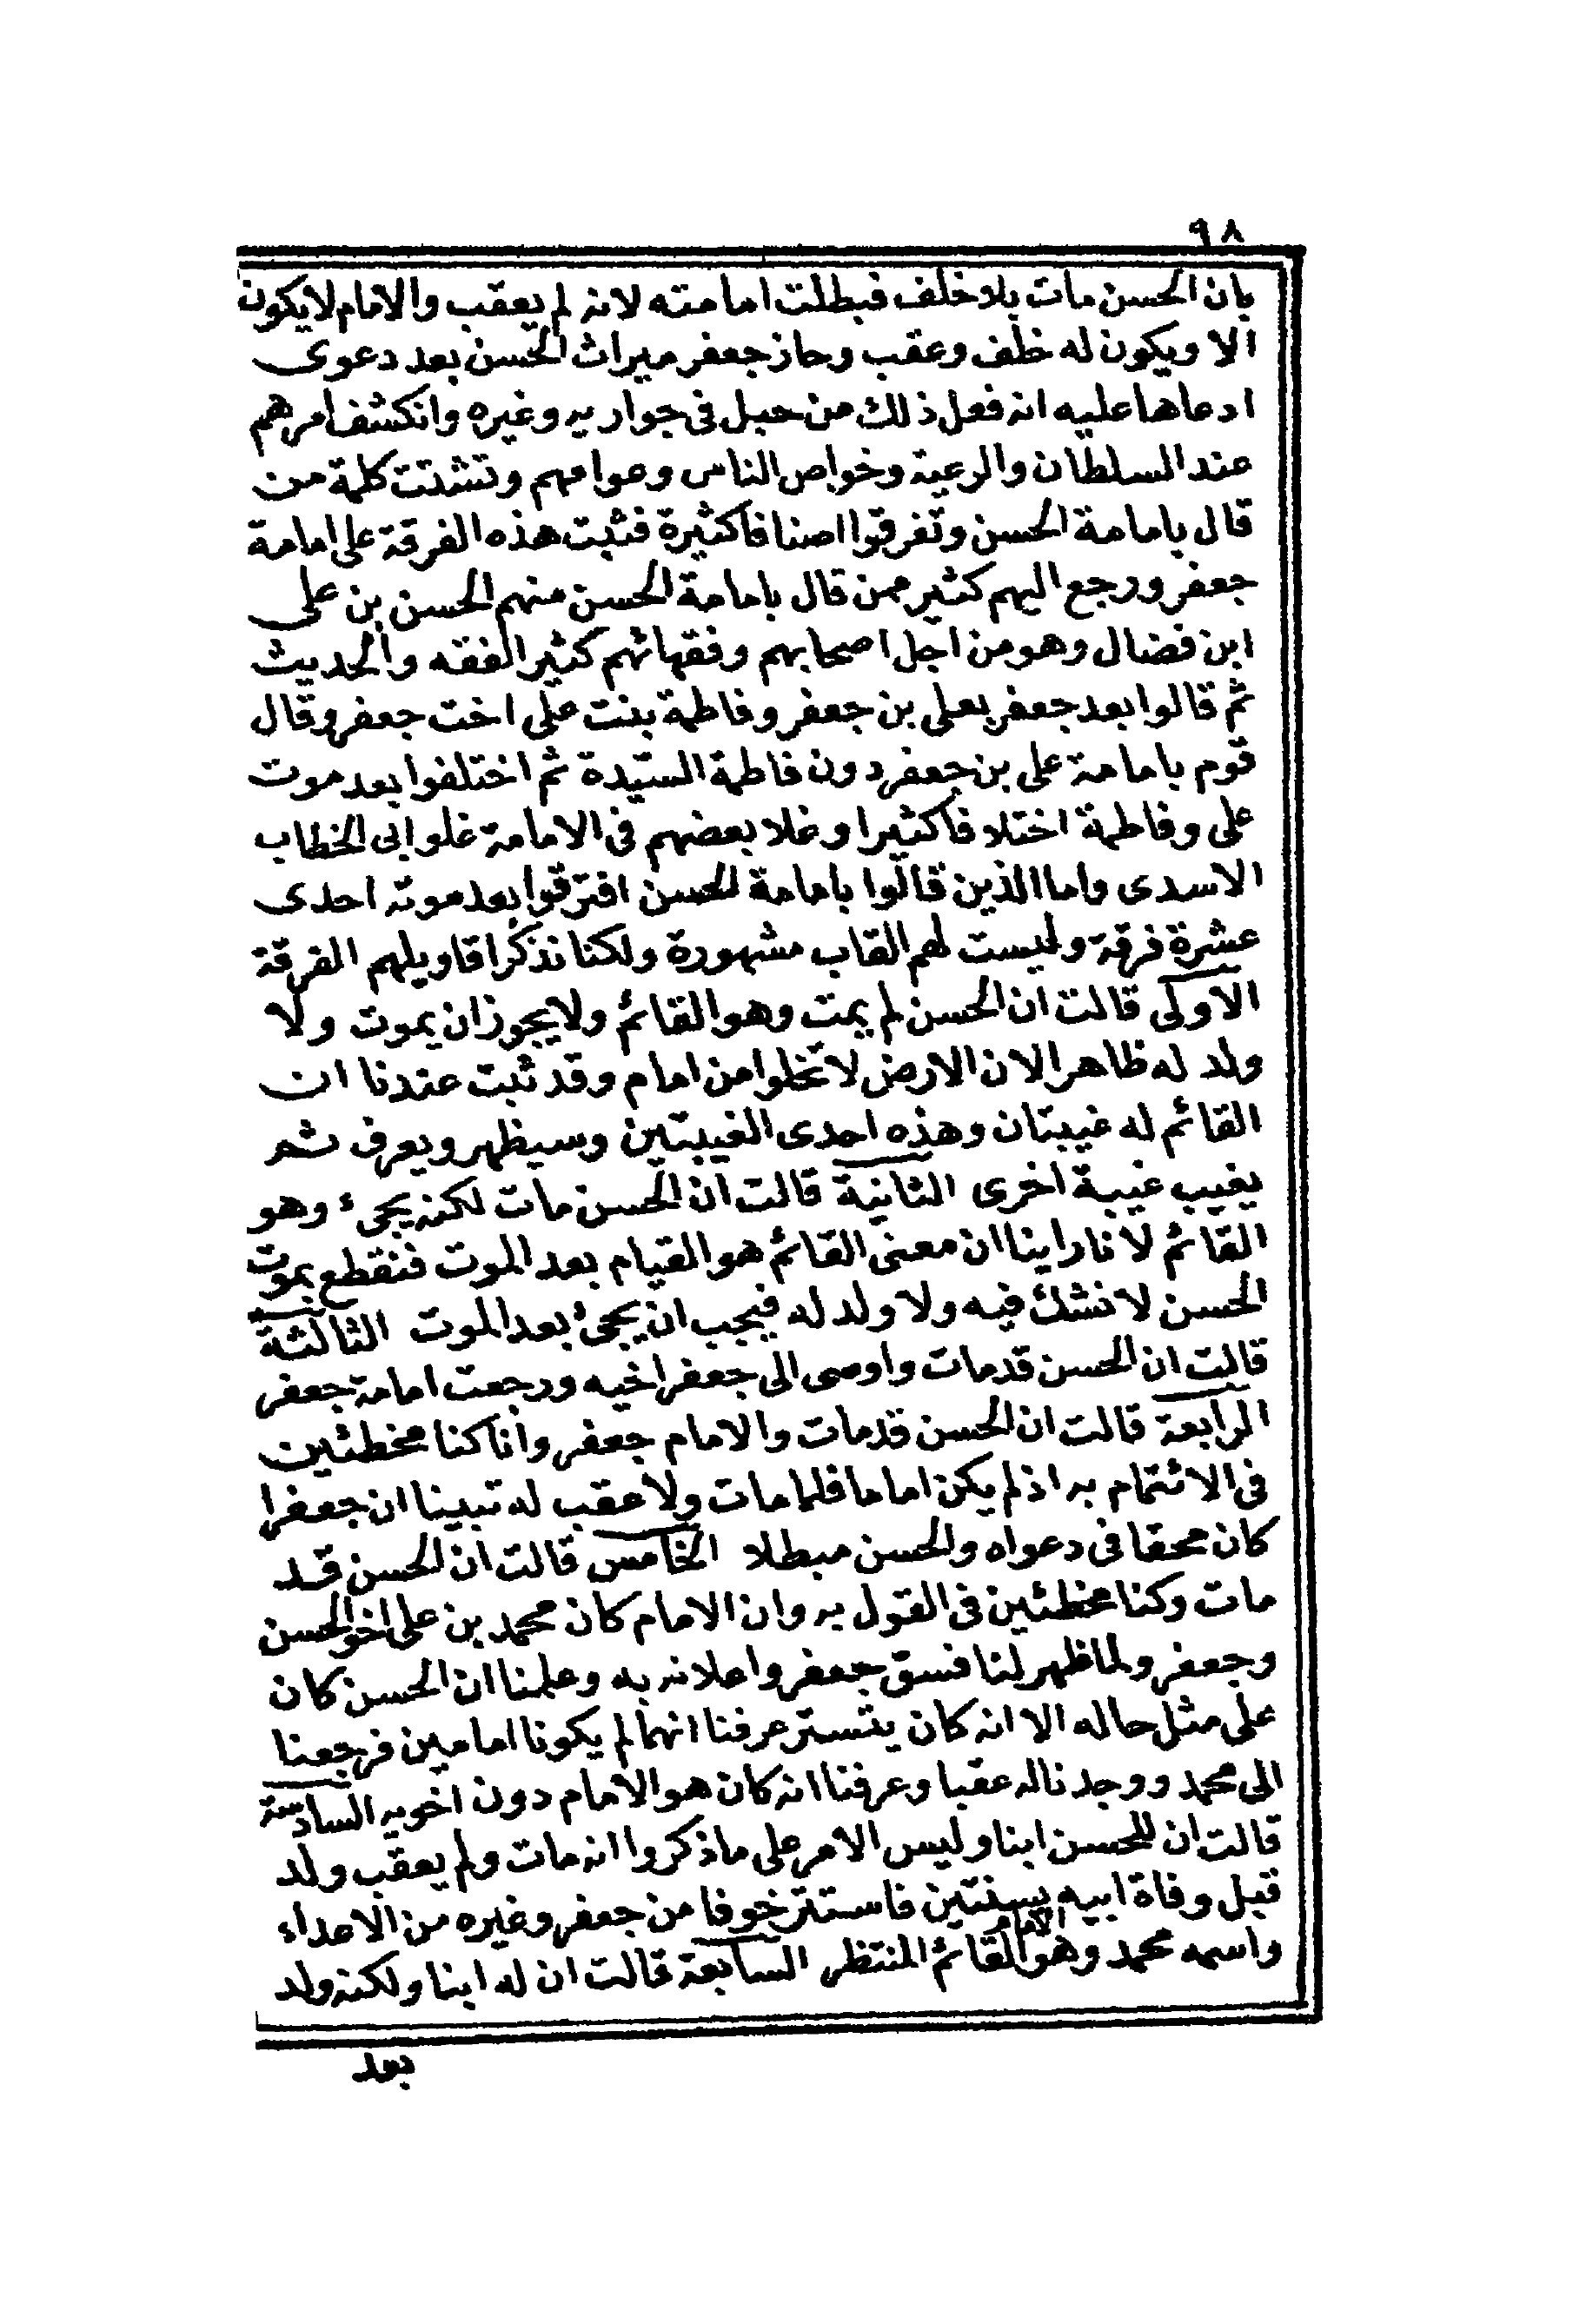 ٩٨
بان الحسن مات بلا خلف فبطلت امامته لانه لم يعقب والامام لا يكون
الا ويكون له خلف وعقب وحاز جعفر ميراث الحسن بعد دعوى
ادعاها عليه انه فعل ذلك من حبل في جواريه وغيره وانكشف امرهم
عند السلطان والرعية وخواص الناس وعوامهم وتشتت كلمة من
قال بامامة الحسن وتفرقوا اصنافا كثيرة فثبت هذه الفرقة على امامة
جعفر ورجع اليهم كثير ممن قال بامامة الحسن منهم الحسن بن على
ابن فضال وهو من اجل اصحابهم وفقهائهم كثير الفقه والحديث
ثم قالوا بعد جعفر بعلى بن جعفر وفاطمة بنت على اخت جعفر وقال
قوم بامامة على بن جعفر دون فاطمة السيدة ثم اختلفوا بعد موت
على وفاطمة اختلافا كثيرا وغلا بعضهم في الامامة غلو ابى الخطاب
الاسدى واما الذين قالوا بامامة الحسن افترقوا بعد موته احدى
عشرة فرقة وليست لهم القاب مشهورة ولكنا نذكر اقاويلهم الفرقة
الاولى قالت ان الحسن لم يمت وهو القائم ولا يجوز ان يموت ولا
ولد له ظاهرا لان الارض لا تخلوا من امام وقد ثبت عندنا ان
القائم له غيبتان وهذه احدى الغيبتين وسيظهر ويعرف ثم
يغيب غيبة اخرى الثانية قالت ان الحسن مات لكنه يجىء وهو
القائم لانا راينا ان معنى القائم هو القيام بعد الموت فنقطع بموت
الحسن لا نشك فيه ولا ولد له فيجب ان يجئ بعد الموت الثالثة
قالت ان الحسن قد مات واوصى الى جعفر اخيه ورجعت امامة جعفر
الرابعة قالت ان الحسن قد مات والامام جعفر وانا كنا مخطئين
في الائتمام به اذ لم يكن اماما فلما مات ولا عقب له تبينا ان جعفرا
كان محقا في دعواه والحسن مبطلا الخامس قالت ان الحسن قد
مات وكنا مخطئين في القول به وان الامام كان محمد بن على اخو الحسن
وجعفر ولما ظهر لنا فسق جعفر واعلانه به وعلمنا ان الحسن كان
على مثل حاله الا انه كان يتستر عرفنا انهما لم يكونا امامين فرجعنا
الى محمد ووجدنا له عقبا وعرفنا انه كان هو الامام دون اخويه السادسة
قالت ان للحسن ابنا وليس الامر على ما ذكروا انه مات ولم يعقب ولد
قبل وفاة ابيه بسنتين فاستتر خوفا من جعفر وغيره من الاعداء
واسمه محمد وهو الامام القائم المنتظر السابعة قالت ان له ابنا ولكنه ولد
بعد